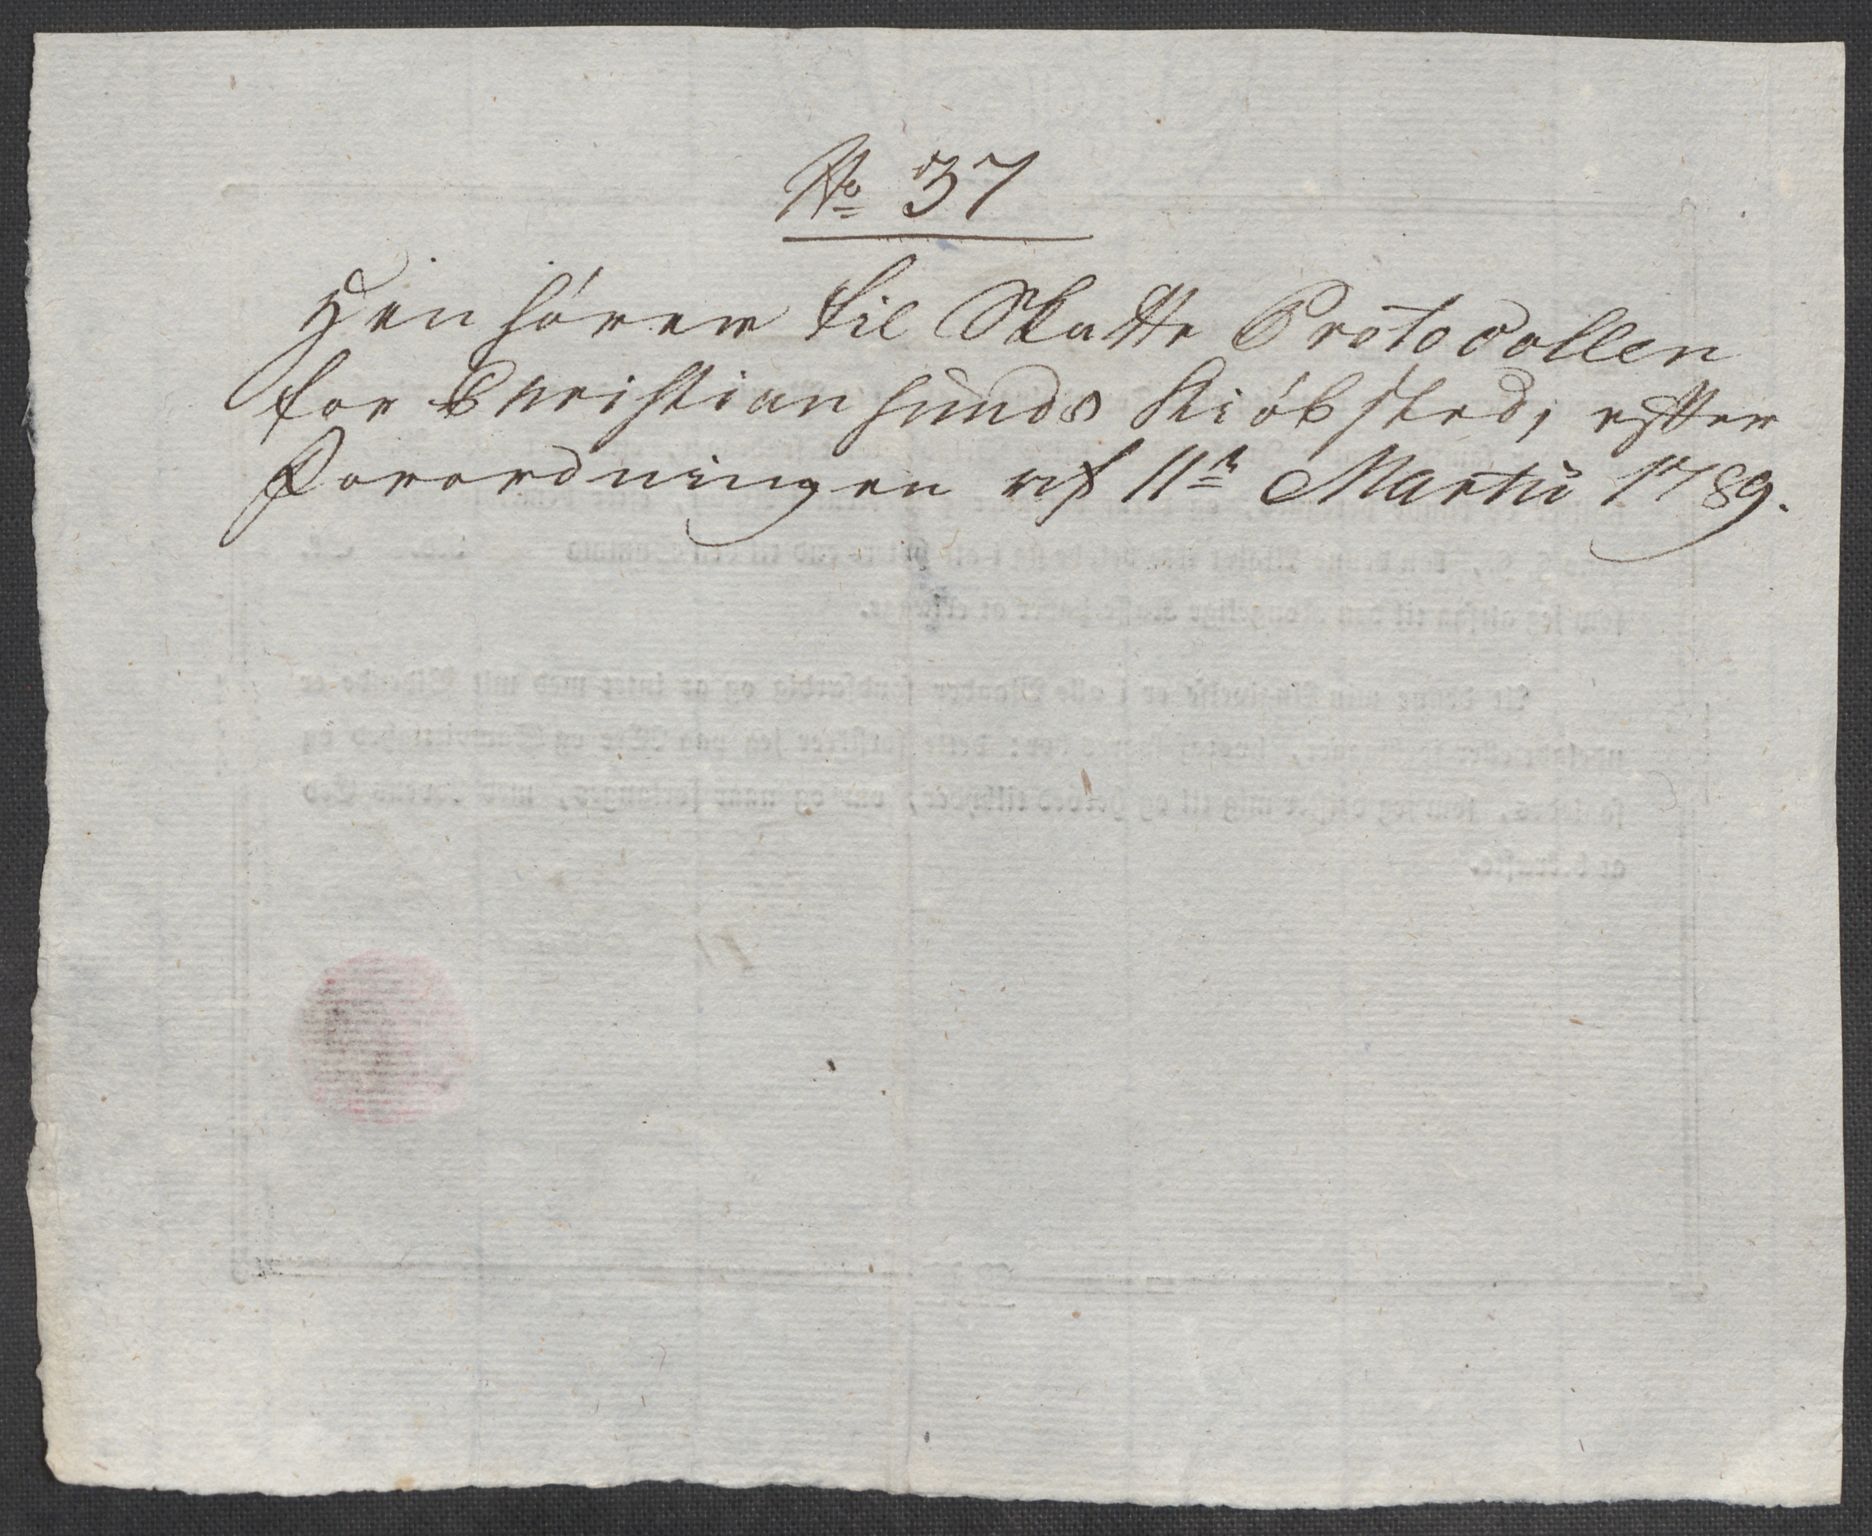 No 37
Henhører til Skatte Protocollen
for Christiansunds Kiøbsted, efter
Forordningen af 11te Martii 1789.